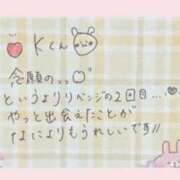 Kくん
念願の、、
というよりリベンジの2回目…
やっと出会えたことが
なによりもうれしいです!!